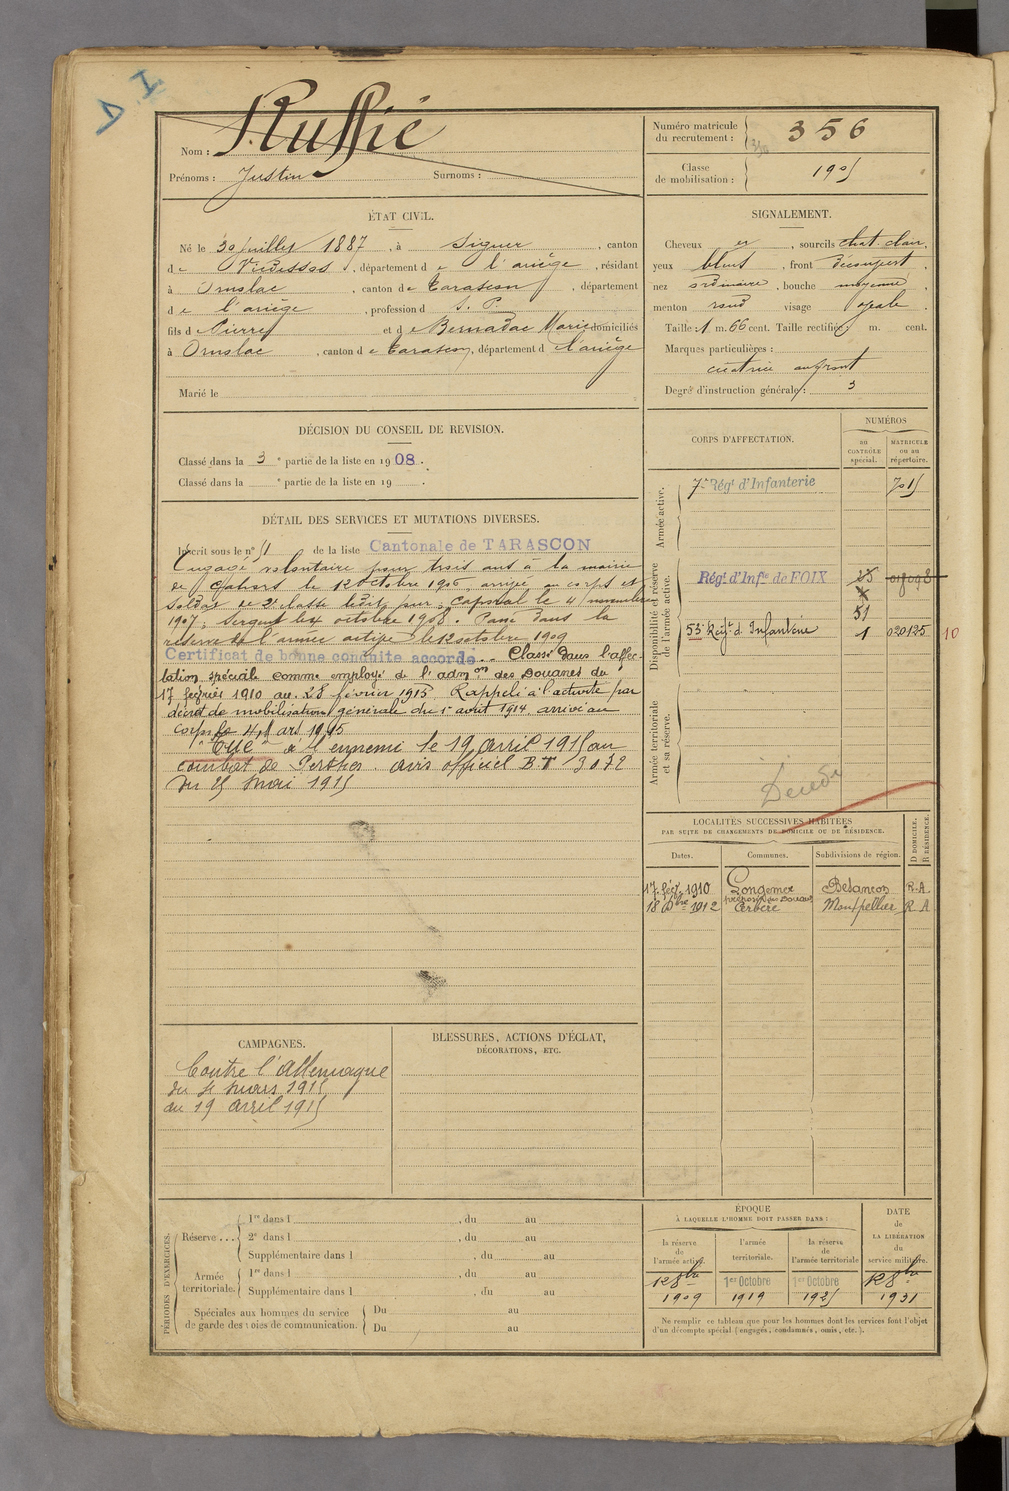 D I
Nom : Ruffié
Prénoms : Justin Surnoms :
Numéro matricule
du recrutement : 356
Classe
de mobilisation : 1905
ÉTAT CIVIL.
Né le 30 juillet 1887, à Siguer, canton
de Vicdessos, département de l'ariège, résidant
à Ornolac, canton de Tarascon, département
de l'ariège, profession d S. P.
fils de Pierre et de Bernadac Marie domiciliés
à Ornolac, canton de Tarascon, département d l'ariège
Marié le
SIGNALEMENT.
Cheveux , sourcils chat. clair,
yeux bleus, front découvert,
nez ordinaire, bouche moyenne,
menton rond visage ovale.
Taille : 1 m. 66 cent. Taille rectifiée : m. cent.
Marques particulières :
cicatrice au front
Degré d'instruction générale : 3
DÉCISION DU CONSEIL DE REVISION.
Classé dans la 3e partie de la liste en 1908.
Classé dans la e partie de la liste en 19 .
CORPS D'AFFECTATION.
NUMÉROS
au
CONTRÔLE
spécial.
MATRICULE
ou au
répertoire.
Armée active.
7e Régt d'Infanterie 705
Disponibilité et réserve
de l'armée active.
Régt d'Infie de FOIX
51
53e Régt d'Infanterie 1 020125 10
Armée territoriale
et sa réserve.
Décédé
DÉTAIL DES SERVICES ET MUTATIONS DIVERSES.
Inscrit sous le n° 51 de la liste Cantonale de TARASCON
Engagé volontaire pour trois ans à la mairie
de Cahors le 12 octobre 1906, arrivé au corps et
soldat de 2e classe ledit jour ; Caporal le 4 novembre
1907 ; Sergent le 4 octobre 1908. Passé dans la
réserve de l'armée active le 12 octobre 1909
Certificat de bonne conduite accordé. Classé dans l'affec-
tation spéciale comme employé de l'admon des Douanes du
17 février 1910 au 28 février 1915. Rappelé à l'activité par
décret de mobilisation générale du 1er août 1914, arrivé au
corps le 4 Mars 1915
"Tué" à l'ennemi le 19 avril 1915 au
combat de Perthes. avis officiel B.T 3072
du 25 mai 1915
LOCALITÉS SUCCESSIVES HABITÉES
PAR SUITE DE CHANGEMENTS DE DOMICILE OU DE RÉSIDENCE.
Dates. Communes. Subdivisions de région. D DOMICILE. R RÉSIDENCE.
17 févr 1910 Longemer Belançon R.A.
préposé des Douanes
18 Dbre 1912 Cerbère Montpellier R A
CAMPAGNES.
Contre l'Allemagne
du 4 mars 1915
au 19 avril 1915
BLESSURES, ACTIONS D'ÉCLAT,
DÉCORATIONS, ETC.
PÉRIODES D'EXERCICES.
Réserve ...
1re dans l , du au
2e dans l , du au
Supplémentaire dans l , du au
Armée
territoriale.
1re dans l , du au
Supplémentaire dans l , du au
Spéciales aux hommes du service
de garde des voies de communication.
Du au
Du au
ÉPOQUE
À LAQUELLE L'HOMME DOIT PASSER DANS :
la réserve
de
l'armée active.
l'armée
territoriale.
la réserve
de
l'armée territoriale
DATE
de
LA LIBÉRATION
du
service militaire.
12 8bre 1909
1er Octobre 1919
1er Octobre 1925
12 8bre 1931
Ne remplir ce tableau que pour les hommes dont les services font l'objet
d'un décompte spécial (engagés, condamnés, omis, etc.).